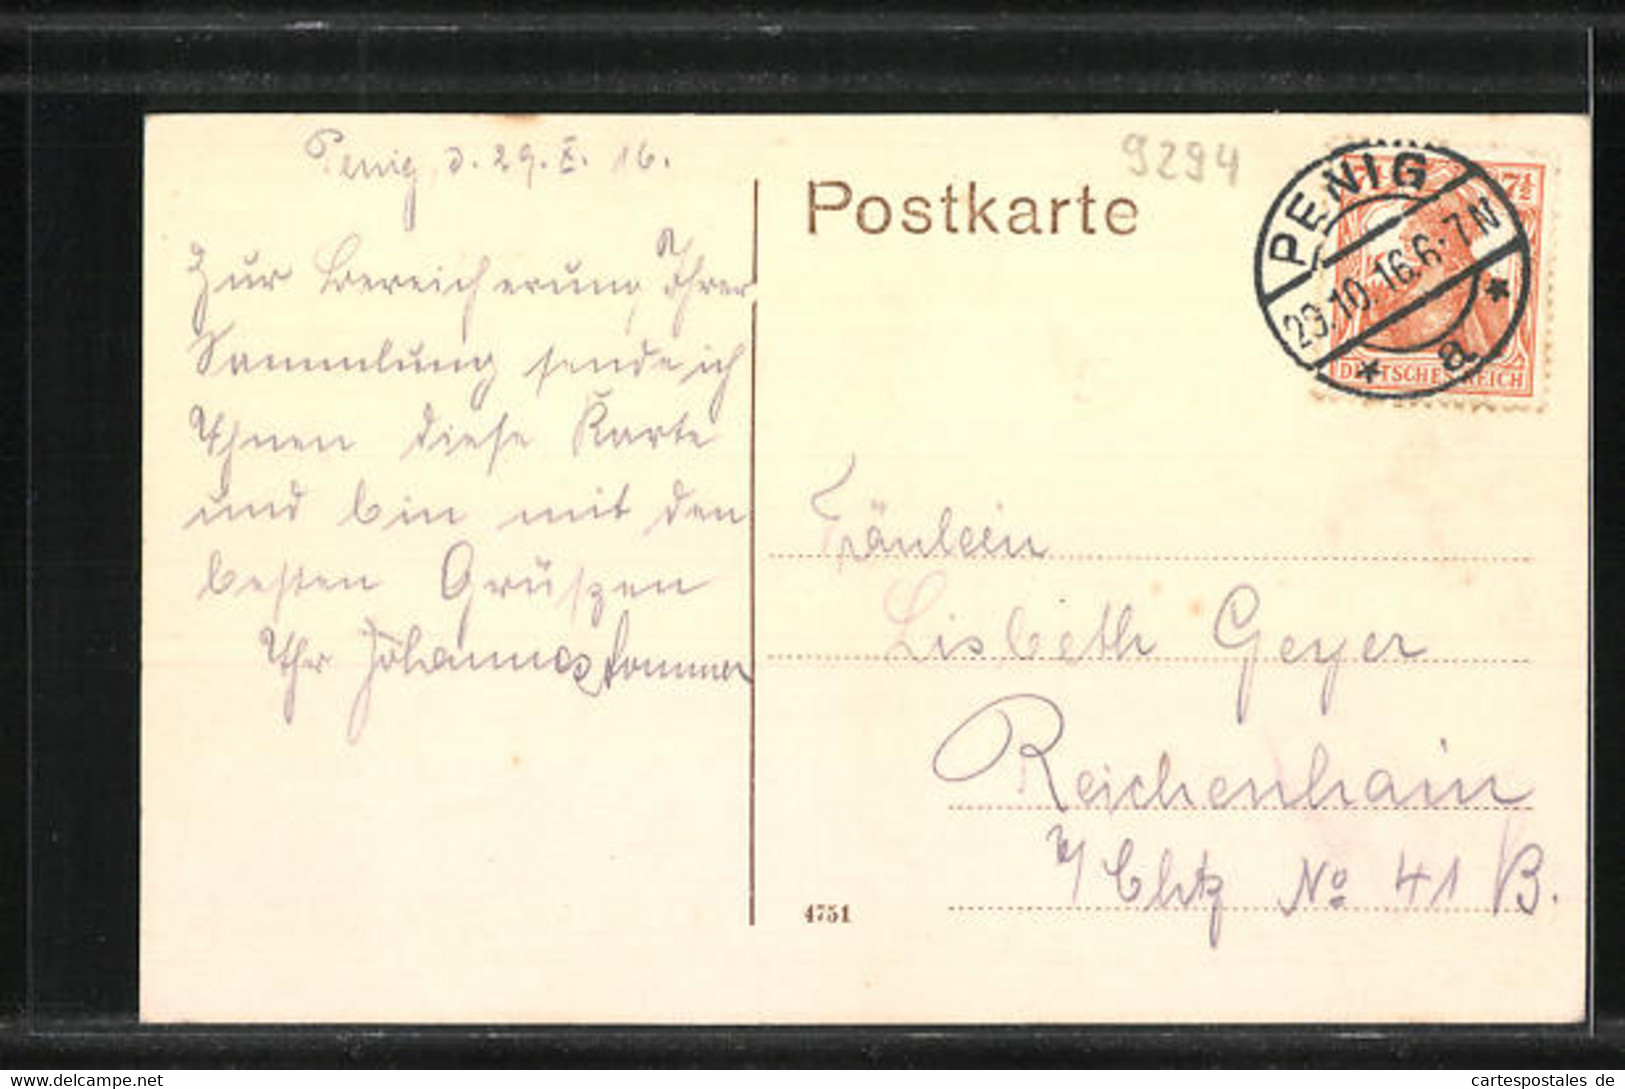 Penig, d. 29. X. 16.
Zur Bereicherung Ihrer
Sammlung sende ich
Ihnen diese Karte
und bin mit den
besten Grüszen
Ihr Johannes Sommer
9294
Postkarte
PENIG
29.10.16.6-7N
* a *
7½
DEUTSCHES REICH
Fräulein
Lisbeth Geyer
Reichenhain
b/ Chtz No 41 B.
4751
www.cartespostales.de
cartespostales de